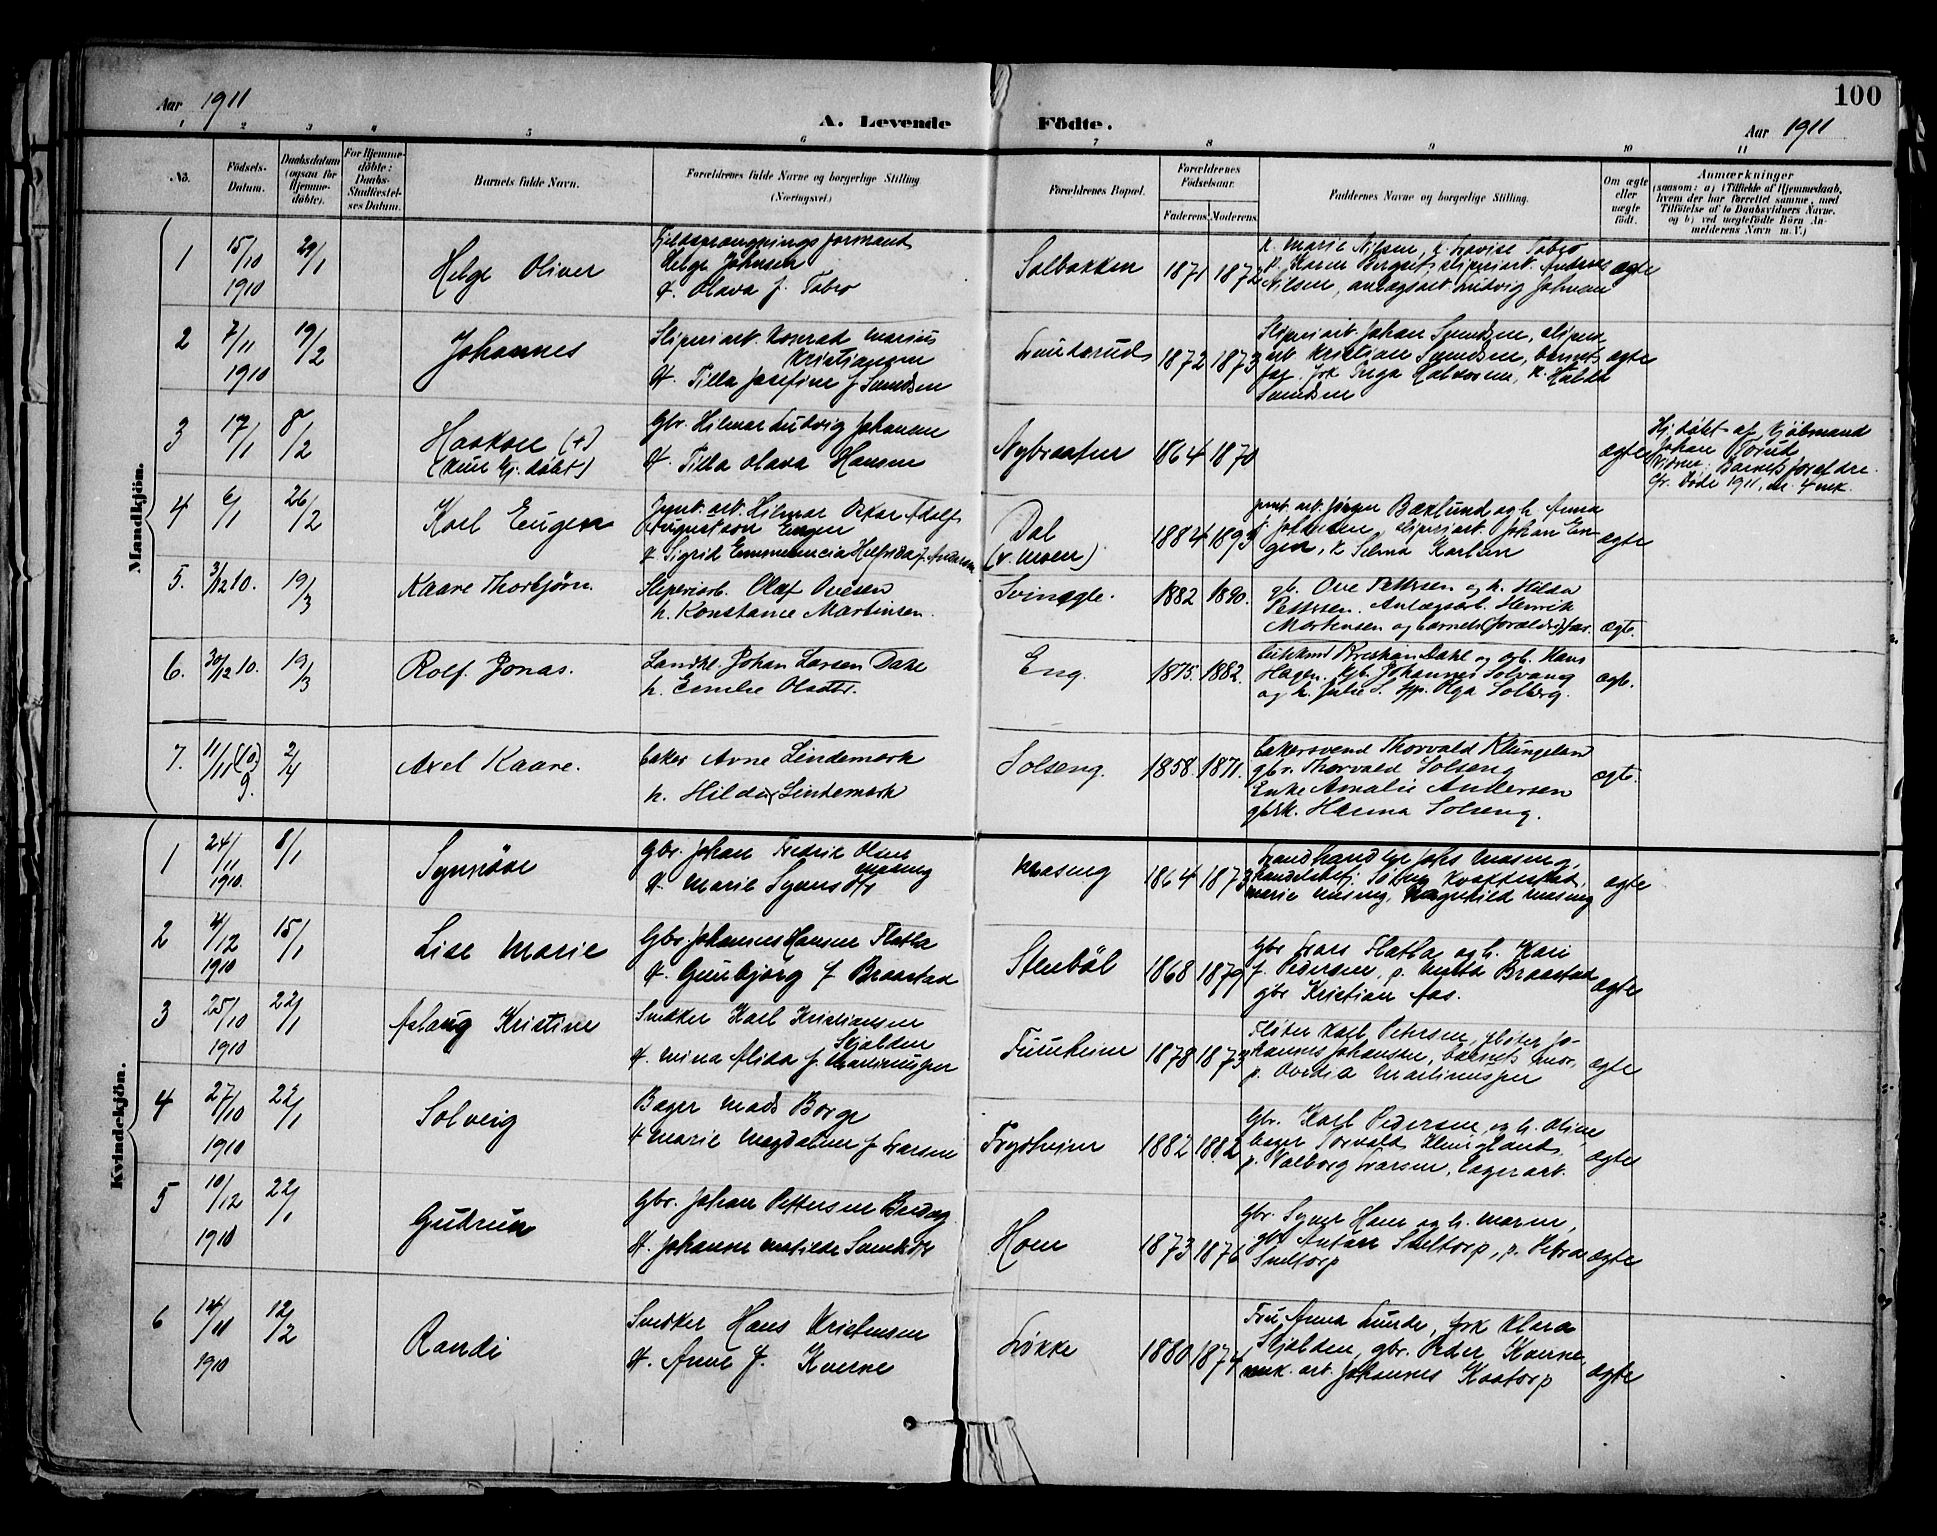 100
Aar 1911
A. Levende Födte.
Aar 1911
1 2 3 4 5 6 7 8 9 10 11
No.
Födsels-
Datum.
Daabsdatum
(ogsaa for
Hjemme-
døbte).
For Hjemme-
döbte:
Daabs-
Stadfæstel-
ses Datum.
Barnets fulde Navn.
Forældrenes fulde Navne og borgerlige Stilling
(Næringsvei.)
Forældrenes Bopæl.
Forældrenes
Födselsaar.
Faderens. Moderens.
Faddernes Navne og borgerlige Stilling.
Om ægte
eller
uægte
født.
Anmærkninger
(saasom: a) i Tilfælde af Hjemmedaab,
hvem der har forrettet samme, med
Tilføielse af to Daabsvidners Navne,
og b) ved uægtefødte Börn An-
melderens Navn m. V.)
Mandkjön.
1
15/10
1910
29/1
Helge Oliver
Fjeldsprængnings formand
Helge Johnsen
H. Olava f. Tobro
Solbakken
1871 1872
k. Marie Nilsen, k. Lovise Tobro
p. Karen Bergset, sliperiarb. Andreas
Nilsen, anlægsarb Ludvig Johnsen
ægte
2
7/11
1910
19/2
Johannes
Sliperiarb. Konrad Marius
Kristiansen
H. Tilla Josefine f Svendsen
Lundsrud
1872 1873
Sliperiarb. Johan Svendsen, sliperi
arb. Kristian Svendsen, barnets
far. frk Inga Halvorsen, k. Hulda
Svendsen
ægte
3
17/1
8/2
Haakon (+)
(kun hj. døbt)
Gbr. Hilmar Ludvig Johansen
H. Tilla Olava Hansen
Nybraaten
1864 1870
ægte
Hj. døbt af Kjøbmand
Johan
Vidner: Barnets forældre.
Døde 1911,
4
6/1
26/2
Karl Eugen
arb. Hilmar Oskar Adolf
Augustson Engen
H Sigrid Emmerencia Helfrida f. Andersson
Dal
(v. Moen)
1884 1893
arb. Jørgen Baklund og h. Anna
f. Johansen, sliperiarb. Johan En-
gen, k Selma Karlsen
ægte
5.
3/12 10.
19/3
Kaare Thorbjørn.
Sliperiarb. Olaf Ovesen
h. Konstanse Martinsen.
Svinegle.
1882 1890.
gb. Ove Pettersen og h. Hilda
Pettersen. Anlægsarb. Henrik
Mortensen og barnets (forældre) far.
ægte.
6.
30/12 10.
19/3
Rolf Jonas.
Landh. Johan Larsen Dahl
h. Emilie Olsdtr.
Eng.
1875. 1882.
Kristian Dahl og arb. Hans
Hagen. Gbr. Johannes Solvang
og h. Julie S. pp. Olga Solberg.
ægte.
7.
11/11 (10)
9.
2/4
Axel Kaare.
Baker Arne Lindemark
h. Hilda Lindemark
Solseng.
1858. 1871.
Bakersvend Thorvald Klungelan
gbr. Thorvald Solseng
Enke Amalie Andersen
gbrk. Hanna Solseng.
ægte.
Kvindekjön.
1
24/11
1910.
8/1
Synnöve
Gbr. Johan Fredrik Olsen
Maseng
H. Marie Synnes
Maseng
1864 1873
Landhandler Johs Maseng,
Marie Maseng, Ragnhild Maseng
ægte
2
4/12
1910
15/1
Lise Marie
Gbr. Johannes Hansen Flatla
H. Gunbjörg f Braastad
Stenböl
1868 1879
Gbr Lars Flatla og h. Kari
f. Pedersen, p. Marta Braastad
gbr Kristian Aas.
ægte
3
25/10
1910
22/1
Aslaug Kristine
Snekker Karl Kristiansen
Skjolden
H. Mina Alida f. Martinusen
Furuheim
1878 1873
Fløter Karl Petersen, fløter Jo-
hannes Johansen, barnets mor
p. Martinusen
ægte
4
27/10
1910
22/1
Solveig
Bager Mads Borge
H Marie Magdalene f Larsen
Frydheim
1882 1882
Gbr. Karl Pedersen og h. Oline
bager Torvald Klungland,
p. Valborg Larsen, Lagerarb.
ægte
5
10/12
1910
22/1
Gudrun
Gbr. Johan Pettersen
H. Johanne Matilde
Hoem
1873 1876
Gbr. Syver Hoem og h. Maren,
gbr Anton Sneltorp, p. Petra
Sneltorp
ægte
6
14/11
1910
12/2
Randi
Snekker Hans Kristensen
H. Anne f. Kverne
Løkke
1880 1874
Fru Anna Lunde, frk Klara
Skjolden, gbr. Peder Kverne,
arb. Johannes Kaatorp
ægte